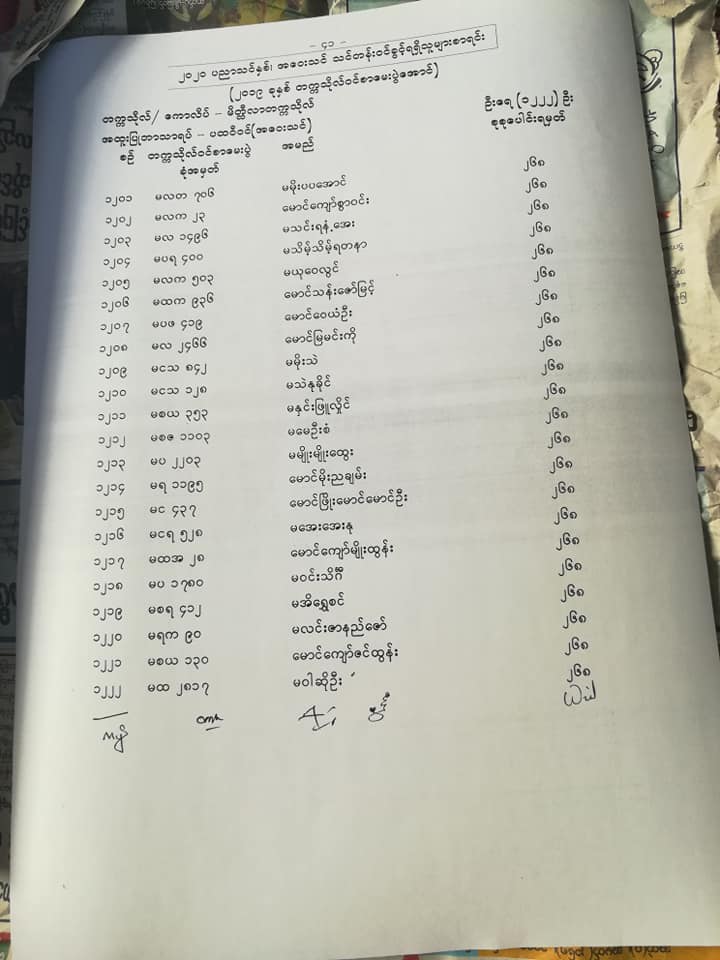 - ၄၁ -
၂၀၂၀ ပညာသင်နှစ်၊ အဝေးသင် သင်တန်းဝင်ခွင့်ရရှိသူများစာရင်း
(၂၀၁၉ ခုနှစ် တက္ကသိုလ်ဝင်စာမေးပွဲအောင်)
တက္ကသိုလ်/ ကောလိပ် - မိတ္ထီလာတက္ကသိုလ်
အထူးပြုဘာသာရပ် - ပထဝီဝင်(အဝေးသင်) ဦးရေ (၁၂၂၂) ဦး
စဉ် တက္ကသိုလ်ဝင်စာမေးပွဲ ခုံအမှတ် အမည် စုစုပေါင်းရမှတ်
၁၂၀၁ မလတ ၇၀၆ မမိုးပပအောင် ၂၆၈
၁၂၀၂ မလက ၂၃ မောင်ကျော်စွာဝင်း ၂၆၈
၁၂၀၃ မလ ၁၄၉၆ မသင်းရနံ့အေး ၂၆၈
၁၂၀၄ မပရ ၄၀၀ မသိမ့်သိမ့်ရတနာ ၂၆၈
၁၂၀၅ မလက ၅၀၃ မယုဝေလွင် ၂၆၈
၁၂၀၆ မထက ၉၃၆ မောင်သန်းဇော်မြင့် ၂၆၈
၁၂၀၇ မပဖ ၄၁၉ မောင်ဝေယံဦး ၂၆၈
၁၂၀၈ မလ ၂၄၆၆ မောင်မြမင်းကို ၂၆၈
၁၂၀၉ မငသ ၈၄၂ မမိုးသဲ ၂၆၈
၁၂၁၀ မငသ ၁၂၈ မသဲနုခိုင် ၂၆၈
၁၂၁၁ မစယ ၃၅၃ မနှင်းဖြူလှိုင် ၂၆၈
၁၂၁၂ မစဇ ၁၁၀၃ မမေဦးစံ ၂၆၈
၁၂၁၃ မပ ၂၂၀၃ မမျိုးမျိုးထွေး ၂၆၈
၁၂၁၄ မရ ၁၁၉၅ မောင်မိုးညချမ်း ၂၆၈
၁၂၁၅ မင ၄၃၇ မောင်ဖြိုးမောင်မောင်ဦး ၂၆၈
၁၂၁၆ မငရ ၅၂၈ မအေးအေးနု ၂၆၈
၁၂၁၇ မထအ ၂၈ မောင်ကျော်မျိုးထွန်း ၂၆၈
၁၂၁၈ မပ ၁၇၈၀ မဝင်းသိင်္ဂီ ၂၆၈
၁၂၁၉ မစရ ၄၁၂ မအိရွှေစင် ၂၆၈
၁၂၂၀ မရက ၉၀ မလင်းဇာနည်ဇော် ၂၆၈
၁၂၂၁ မစယ ၁၃၀ မောင်ကျော်ဇင်ထွန်း ၂၆၈
၁၂၂၂ မထ ၂၈၁၇ မဝါဆိုဦး ၂၆၈